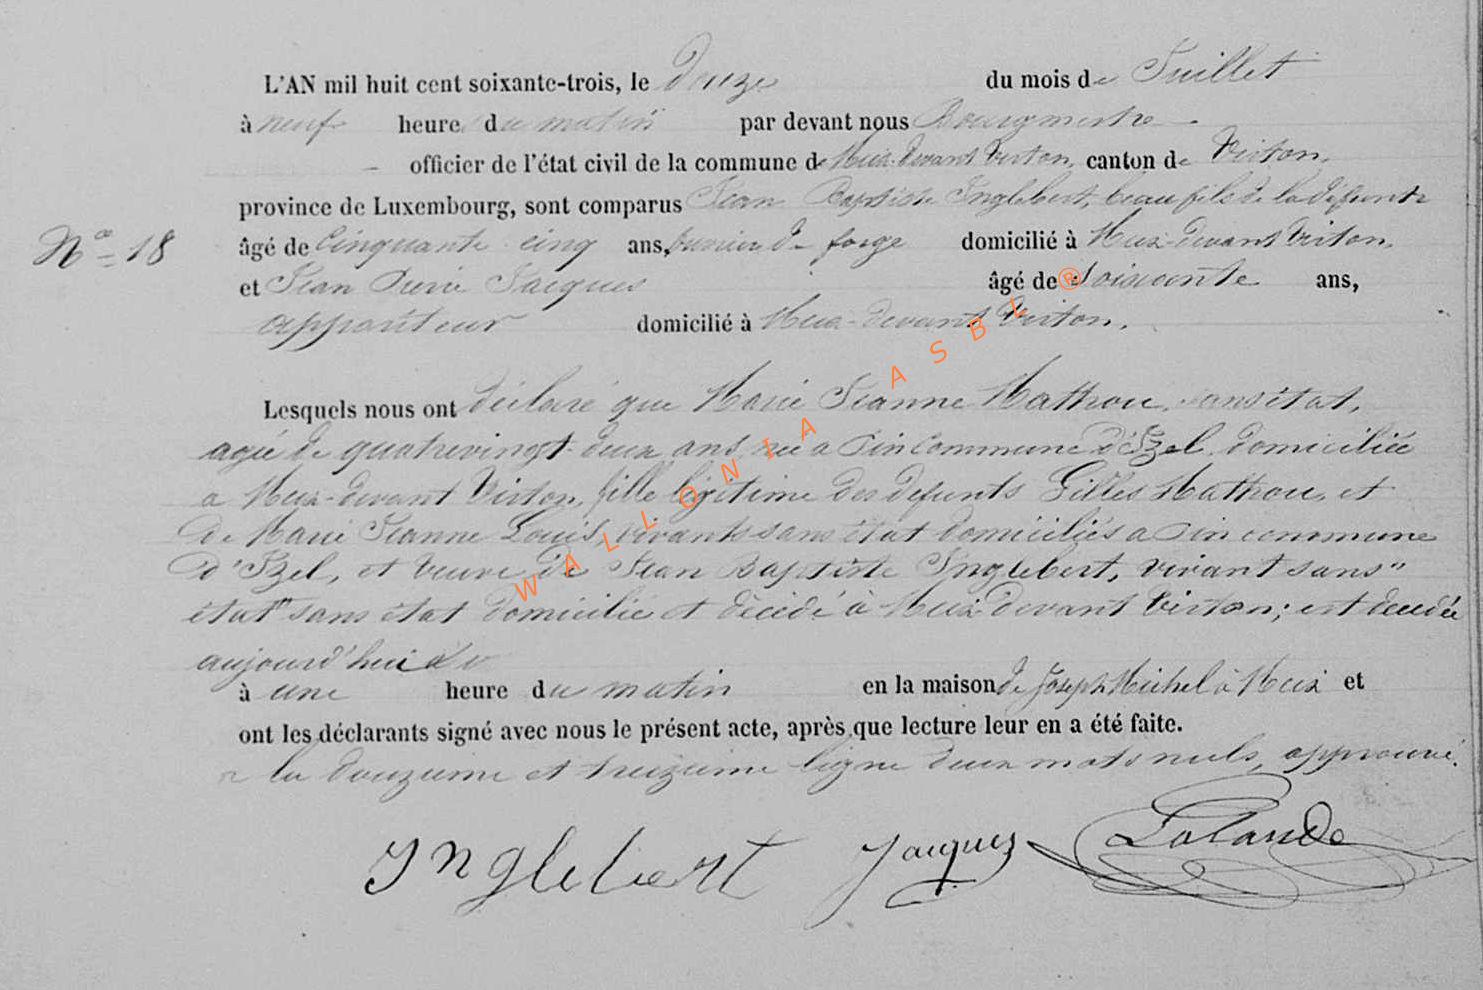 L'AN mil huit cent soixante-trois, le Douze du mois de Juillet
à neuf heure du matin par devant nous Bourgmestre
officier de l'état civil de la commune de Meix-devant Virton, canton de Virton,
province de Luxembourg, sont comparus Jean Baptiste Inglebert, beau fils de la défunte
N° 18 âgé de Cinquante cinq ans, ouvrier de forge domicilié à Meix-devant Virton,
et Jean Pierre Jacques âgé de Soixante ans,
appariteur domicilié à Meix-devant Virton.
Lesquels nous ont déclaré que Marie Jeanne Mathou, sans état,
agée de quatrevingt deux ans, née a Pin Commune d'Izel, domiciliée
a Meix-devant Virton, fille légitime des defunts Gilles Mathou, et
de Marie Jeanne Louis, vivants sans état domiciliés a Pin commune
d'Izel, et veuve de Jean Baptiste Inglebert, vivant sans"
état" sans état domicilié et décédé à Meix-devant Virton; est decedée
aujourd'hui
à une heure du matin en la maison de Joseph Michel à Meix et
ont les déclarants signé avec nous le présent acte, après que lecture leur en a été faite.
a la douzieme et treizieme ligne deux mots nuls, approuvé.
Inglebert Jacques Lalande
WALLONIA ASBL ®